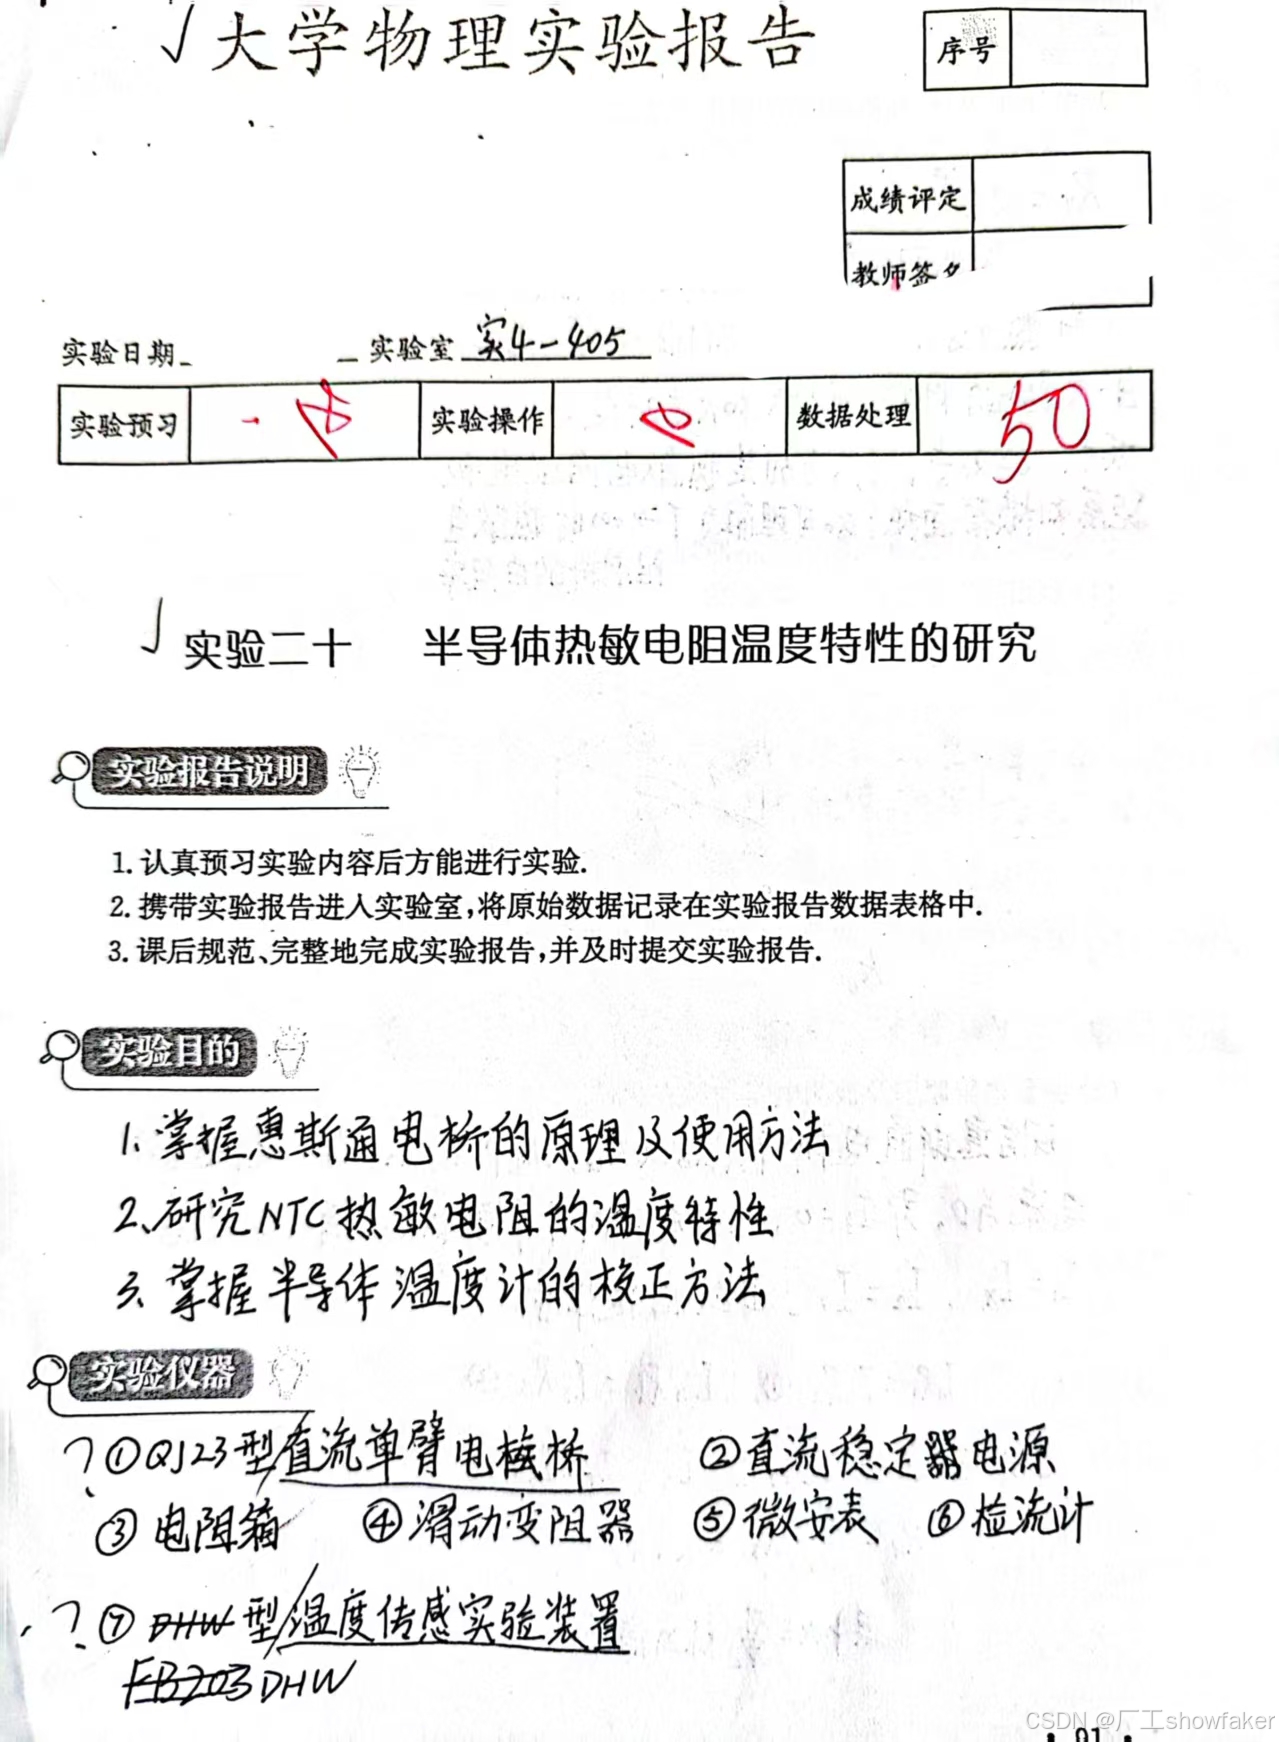 √大学物理实验报告
序号
成绩评定
教师签名
实验日期 实验室 实4-405
实验预习 -18 实验操作 数据处理 50
√ 实验二十 半导体热敏电阻温度特性的研究
实验报告说明
1. 认真预习实验内容后方能进行实验.
2. 携带实验报告进入实验室,将原始数据记录在实验报告数据表格中.
3. 课后规范、完整地完成实验报告,并及时提交实验报告.
实验目的
1. 掌握惠斯通电桥的原理及使用方法
2、研究NTC热敏电阻的温度特性
3、掌握半导体温度计的校正方法
实验仪器
? ①QJ23型/直流单臂电桥 ②直流稳定器电源
③电阻箱 ④滑动变阻器 ⑤微安表 ⑥检流计
? ⑦DHW型/温度传感实验装置
FB203 DHW
CSDN @厂工showfaker
· 91 ·